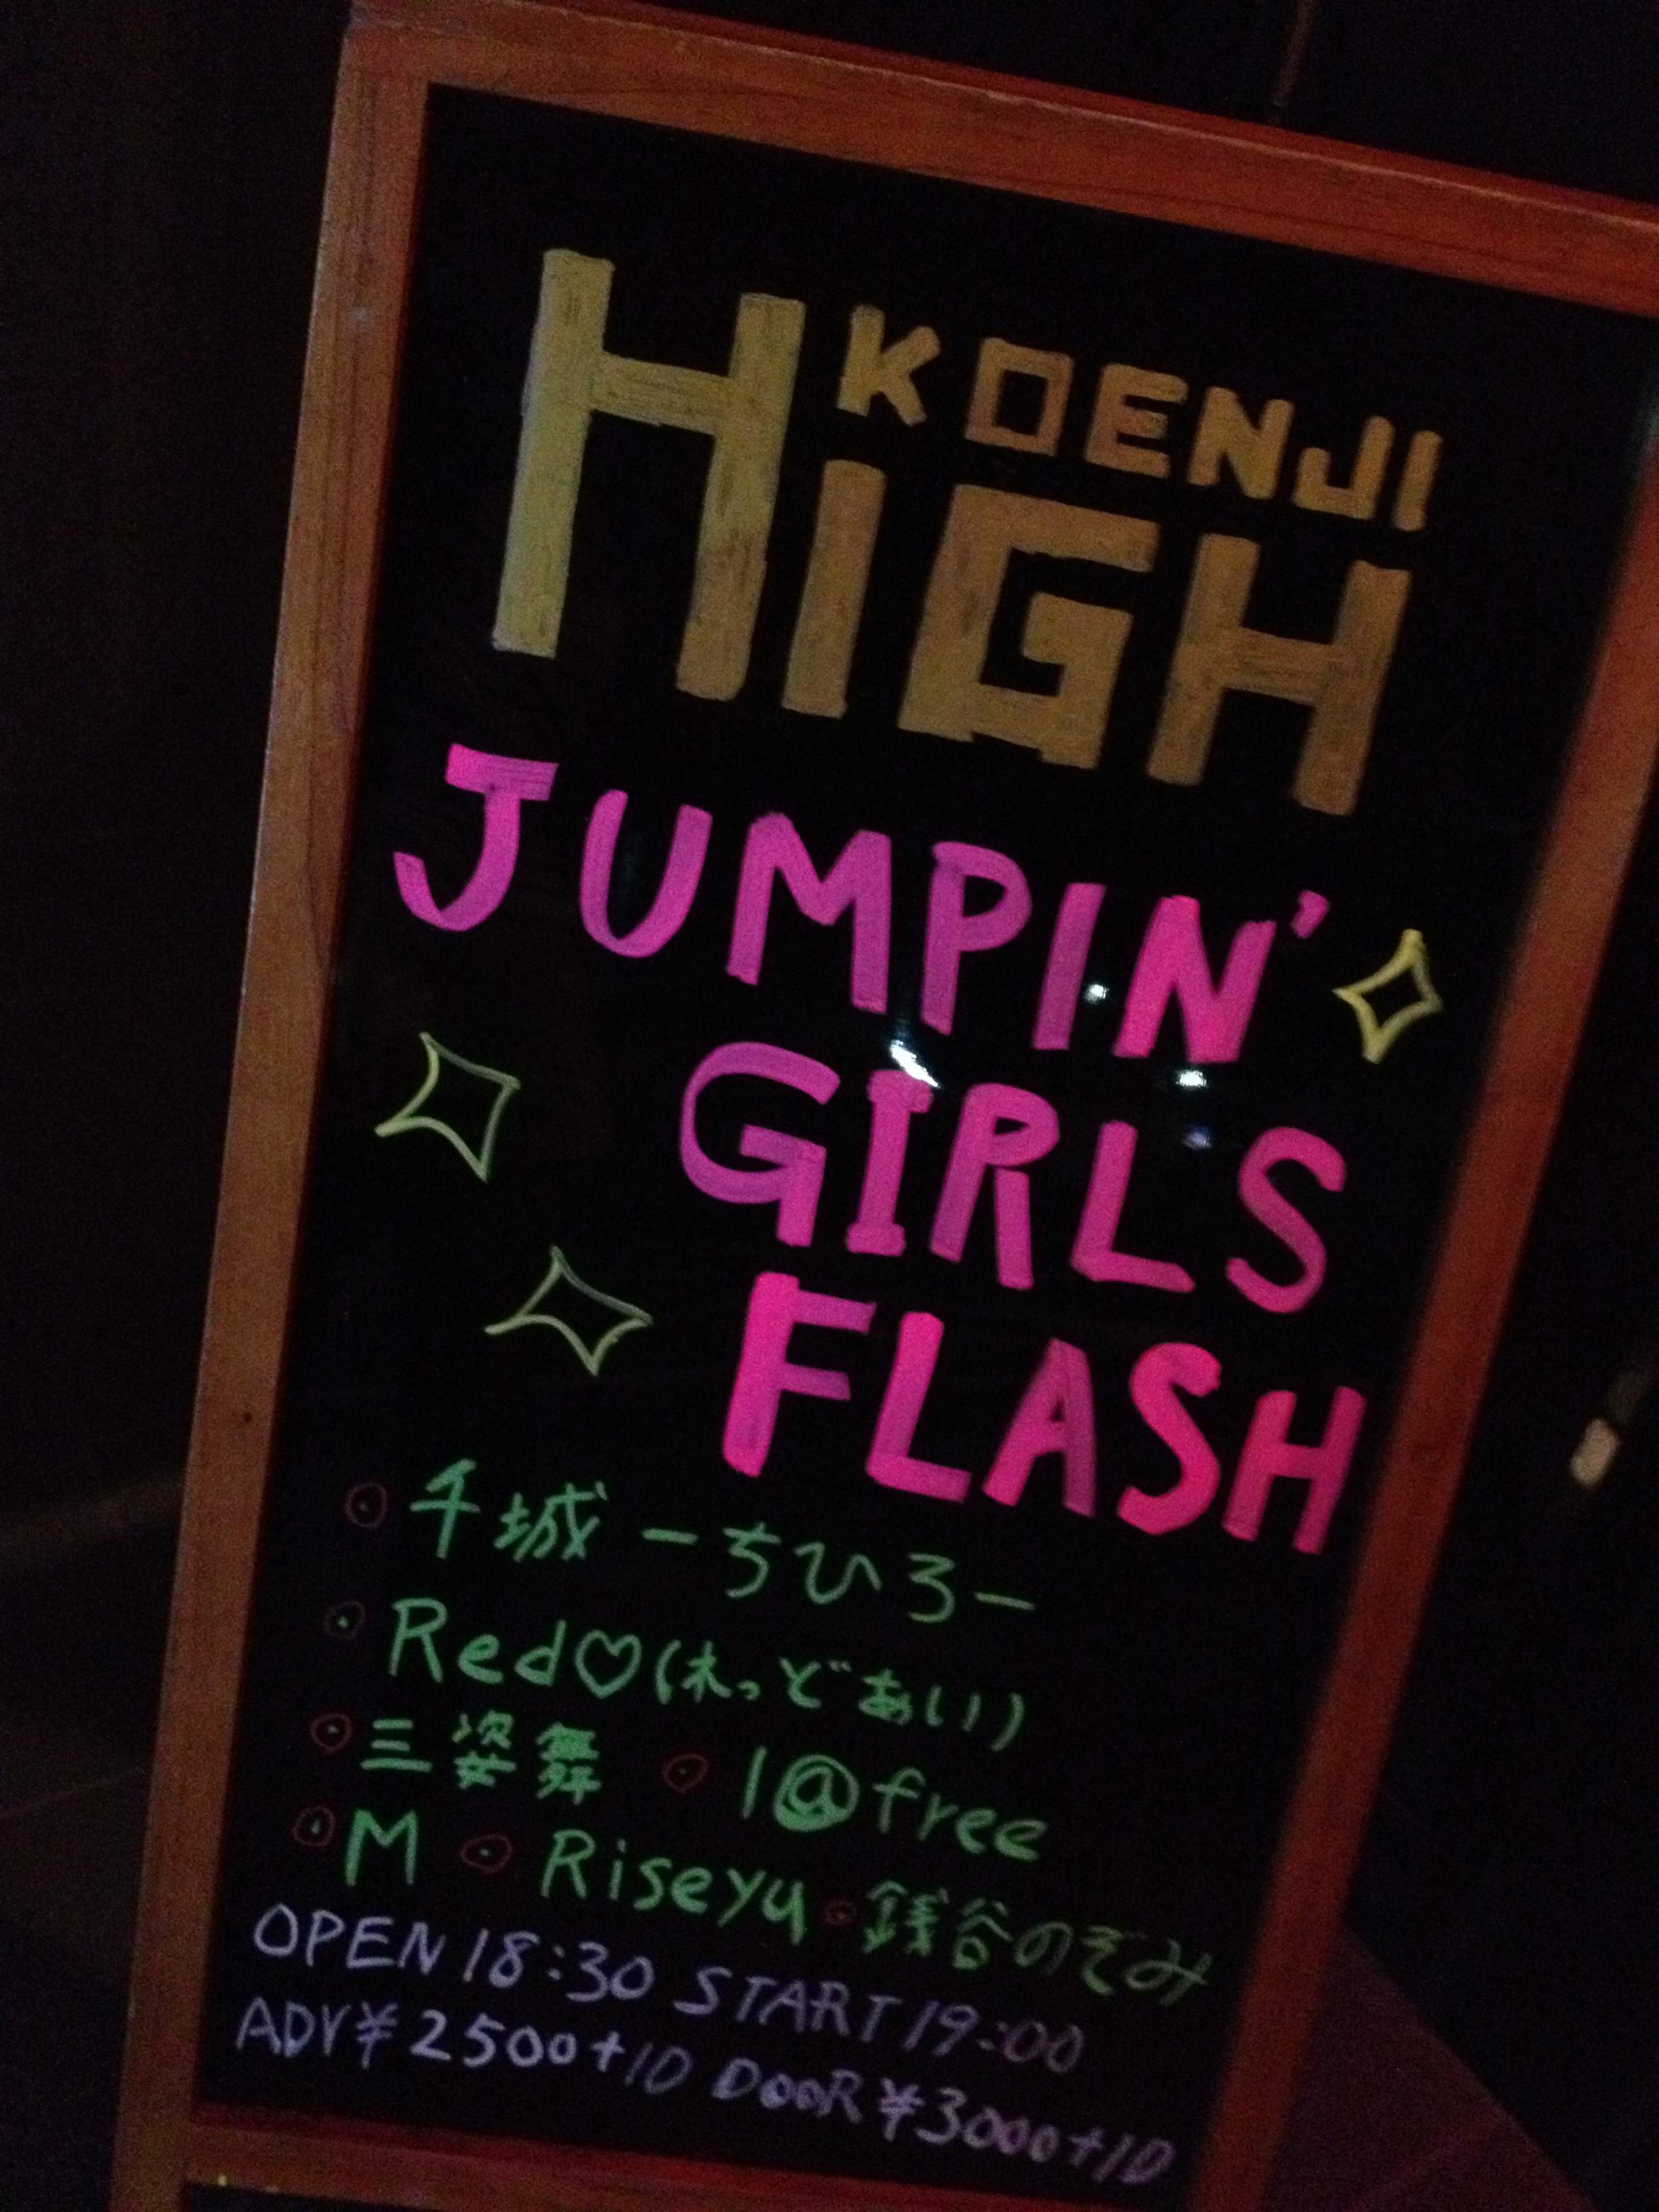 KOENJI
HIGH
JUMPIN'
GIRLS
FLASH
千城 ーちひろー
Red♡(れっどあい)
三姿舞 ・ 1@free
・M ・ Riseyu ・銭谷のぞみ
OPEN 18:30 START 19:00
ADV¥2500+1D DOOR¥3000+1D